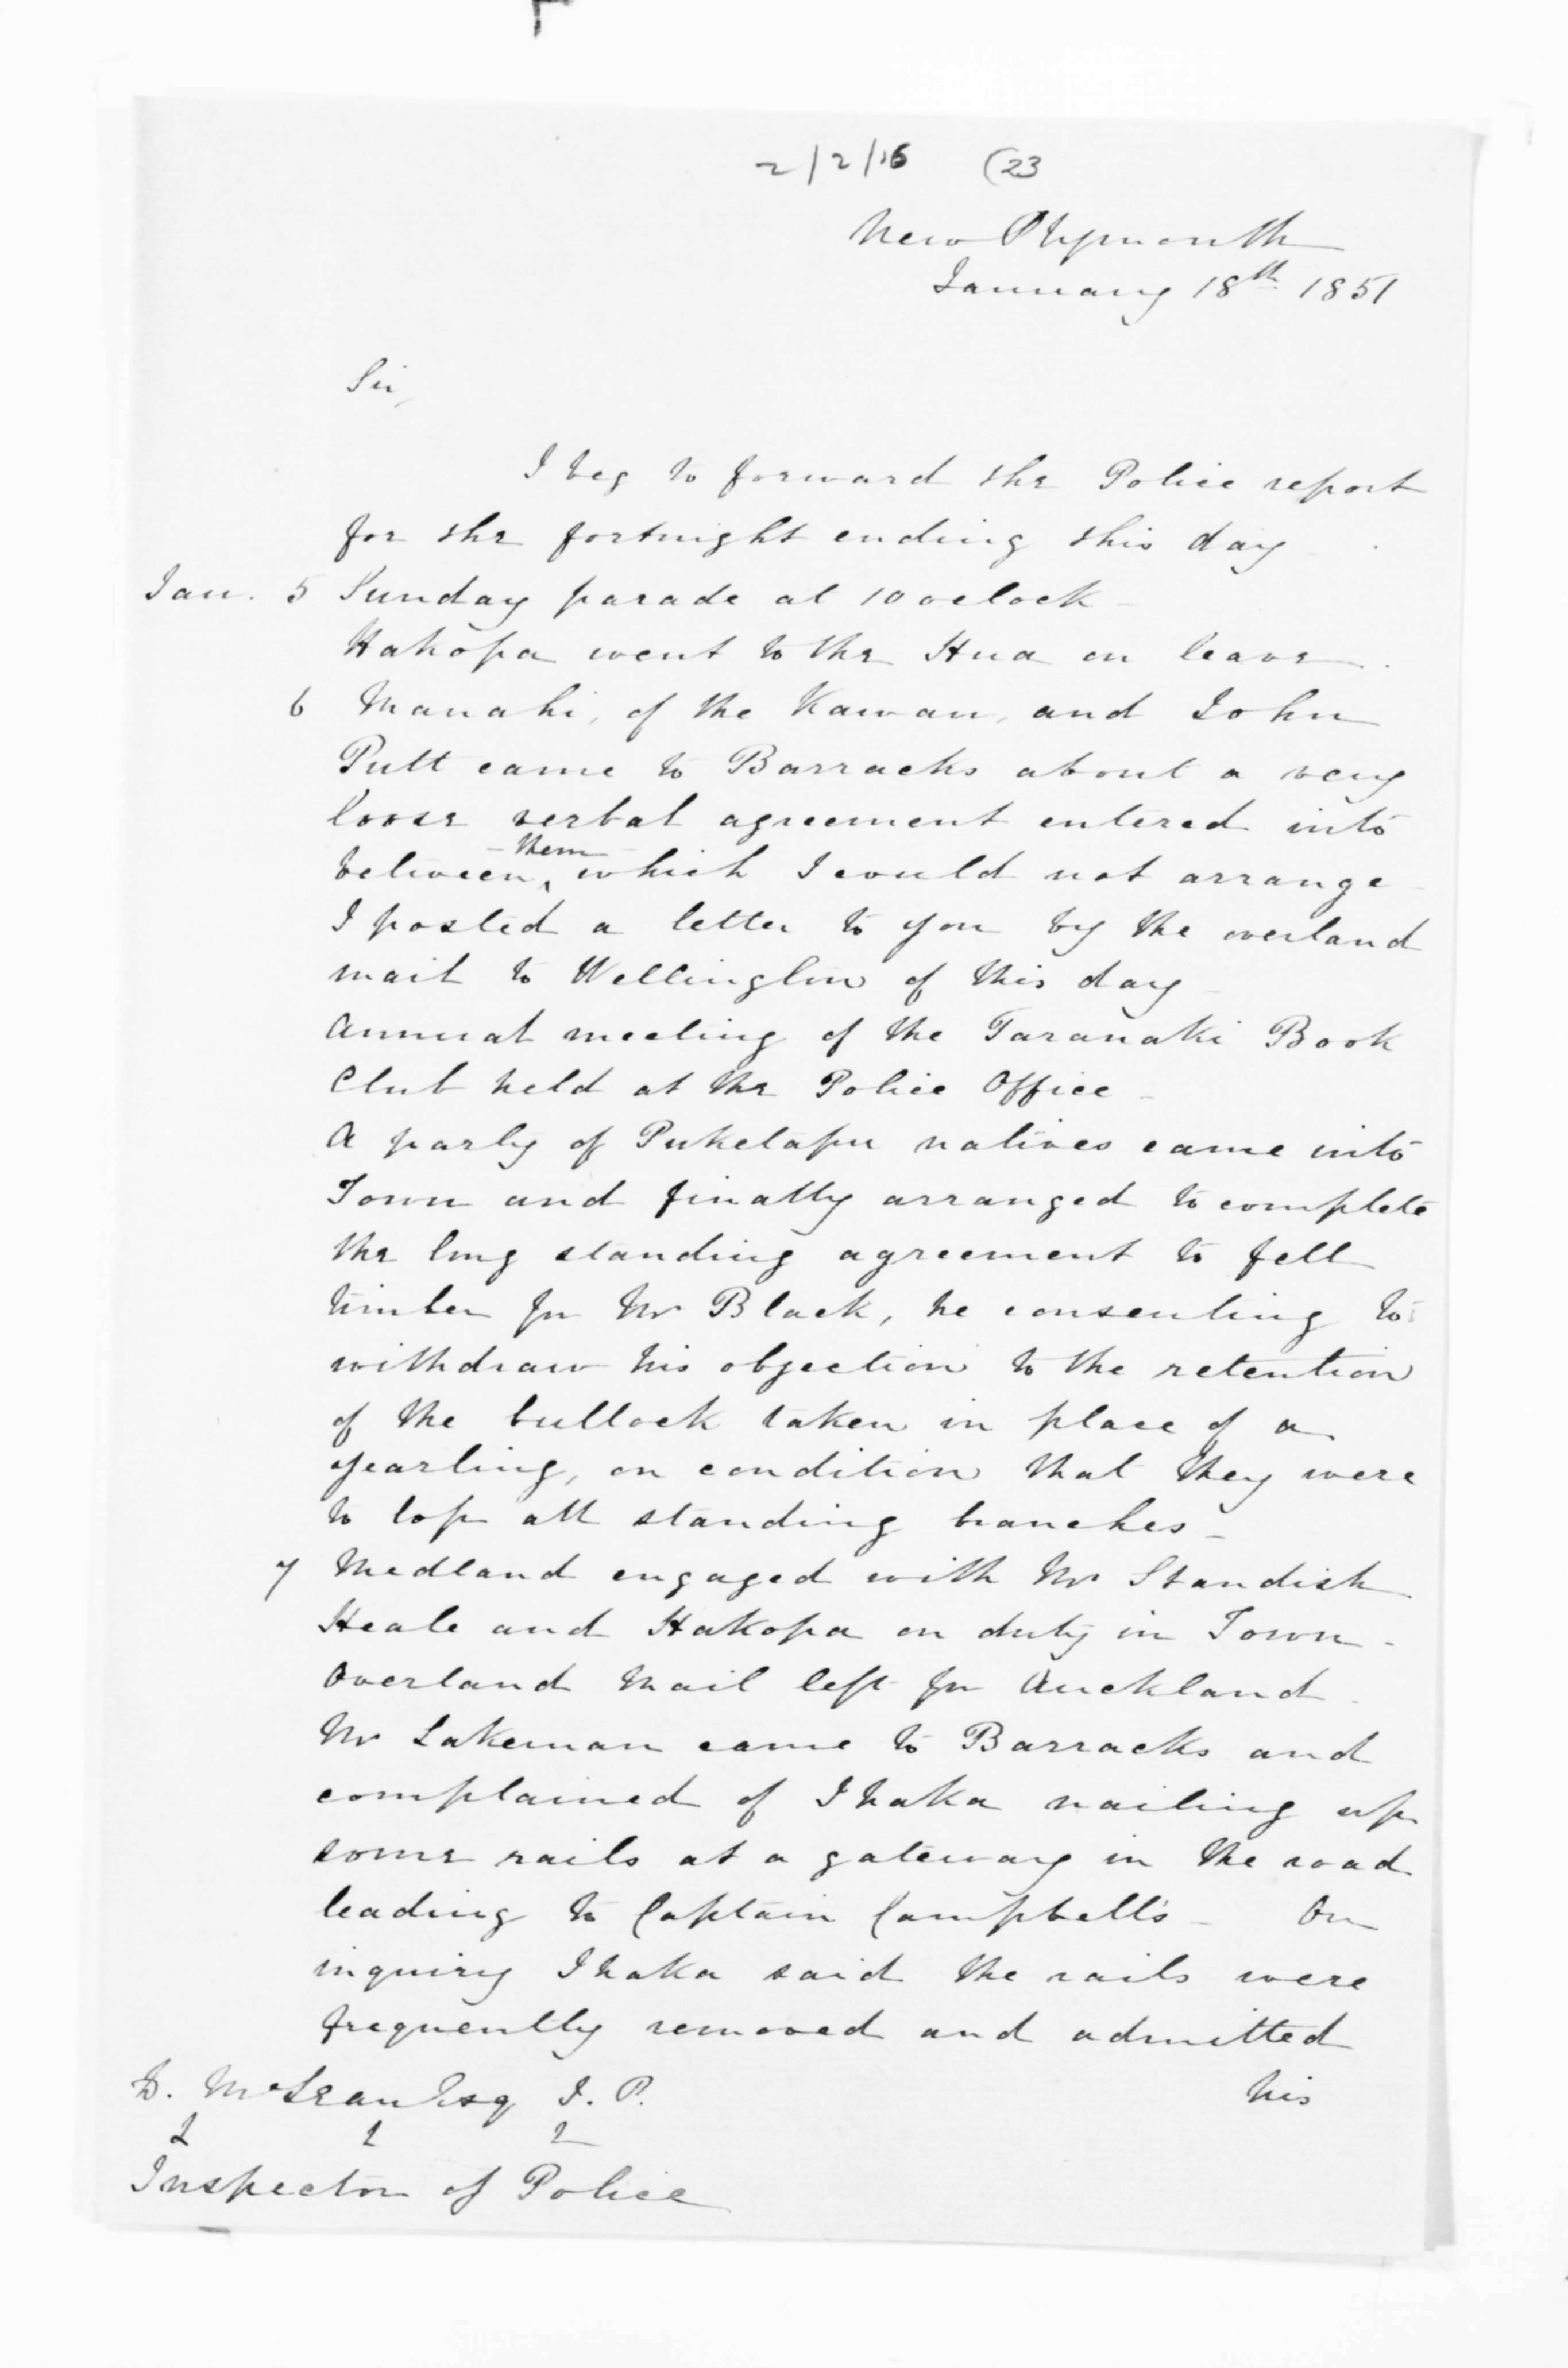 2/2/16 (23
New Plymouth
January 18th 1851
Sir,
I beg to forward the Police report
for the fortnight ending this day
Jan. 5 Sunday parade at 10 oclock
Hakopa went to the Hua on leave.
6 Manahi, of the Kawau, and John
Putt came to Barracks about a very
loose verbal agreement entered into
between them which I could not arrange
I posted a letter to you by the overland
mail to Wellington of this day
Annual meeting of the Taranaki Book
Club held at the Police Office
A party of Puketapu natives came into
Town and finally arranged to complete
the long standing agreement to fell
timber for Mr Black, he consenting to
withdraw his objection to the retention
of the bullock taken in place of a
yearling, on condition that they were
to lop all standing branches
7 Medland engaged with Mr Standish
Heale and Hakopa on duty in Town
Overland Mail left for Auckland.
Mr Lakeman came to Barracks and
complained of Ihaka nailing up
some rails at a gateway in the road
leading to Captain Campbell's On
inquiry Ihaka said the rails were
frequently removed and admitted
his
D. McLean Esq J. P.
Inspector of Police